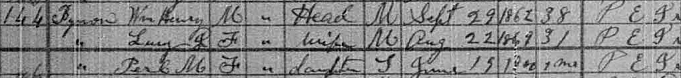 144 Tynon Wm Henry M " Head M Sept 29 1862 38 P E I
" Lucy F " wife M Aug 22 1869 31 P E I
" Pearl M F " daughter S June 19 P E I